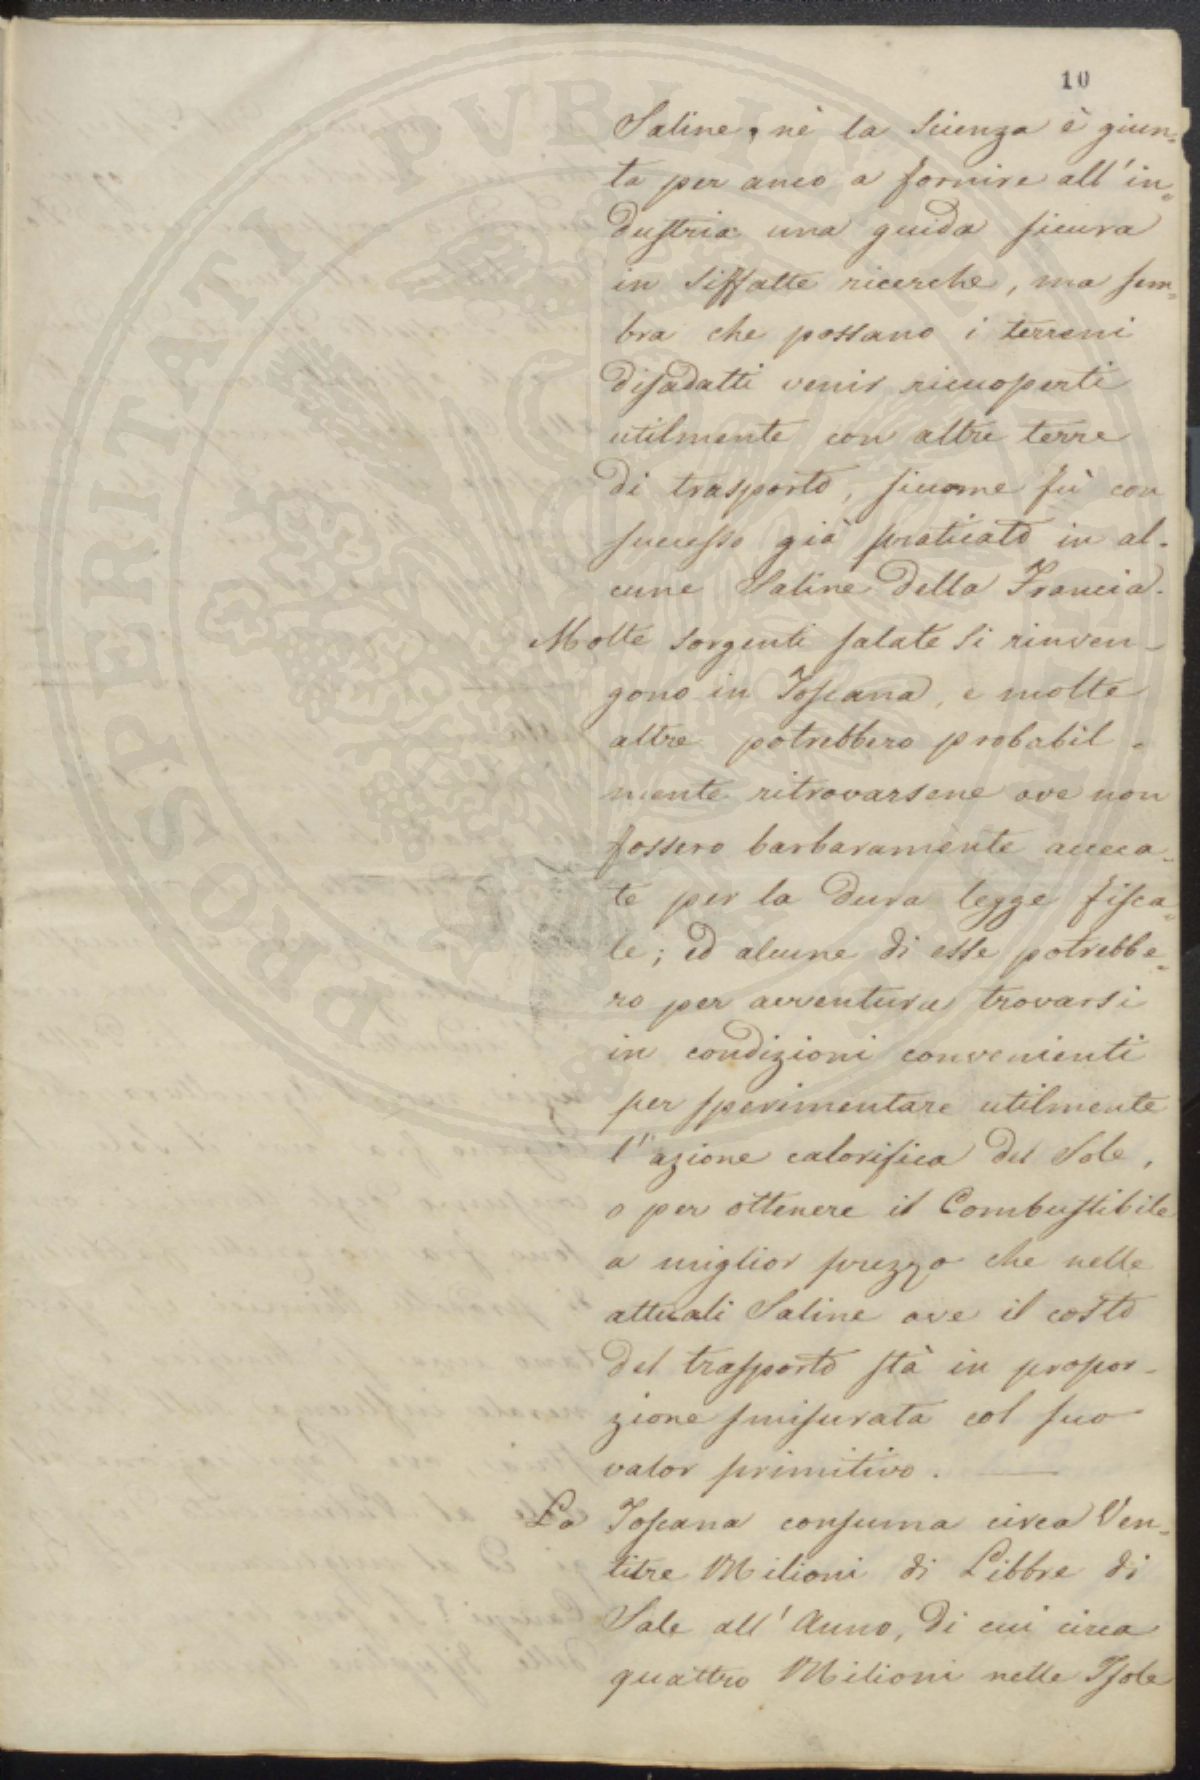 10
Saline, nè la Scienza è giun=
ta per anco a fornire all'in=
dustria una guida sicura
in siffatte ricerche, ma sem=
bra che possano i terreni
disadatti venir ricuoperti
utilmente con altre terre
di trasporto, siccome fù con
successo già praticato in al-
cune Saline della Francia.
Molte sorgenti salate si rinven-
gono in Toscana, e molte
altre potrebbero probabil-
mente ritrovarsene ove non
fossero barbaramente acceca-
te per la dura legge fisca=
le; ed alcune di esse potrebbe=
ro per avventura trovarsi
in condizioni convenienti
per sperimentare utilmente
l'azione calorifica del Sole,
o per ottenere il Combustibile
a miglior prezzo che nelle
attuali Saline ove il costo
del trasporto stà in propor-
zione smisurata col suo
valor primitivo.
La Toscana consuma circa Ven-
titre Milioni di Libbre di
Sale all'Anno, di cui circa
quattro Milioni nelle Isole
PROSPERITATI PVBLICAE